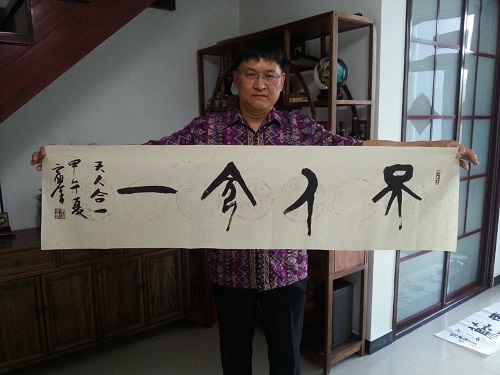 天人合一
天人合一
甲午夏